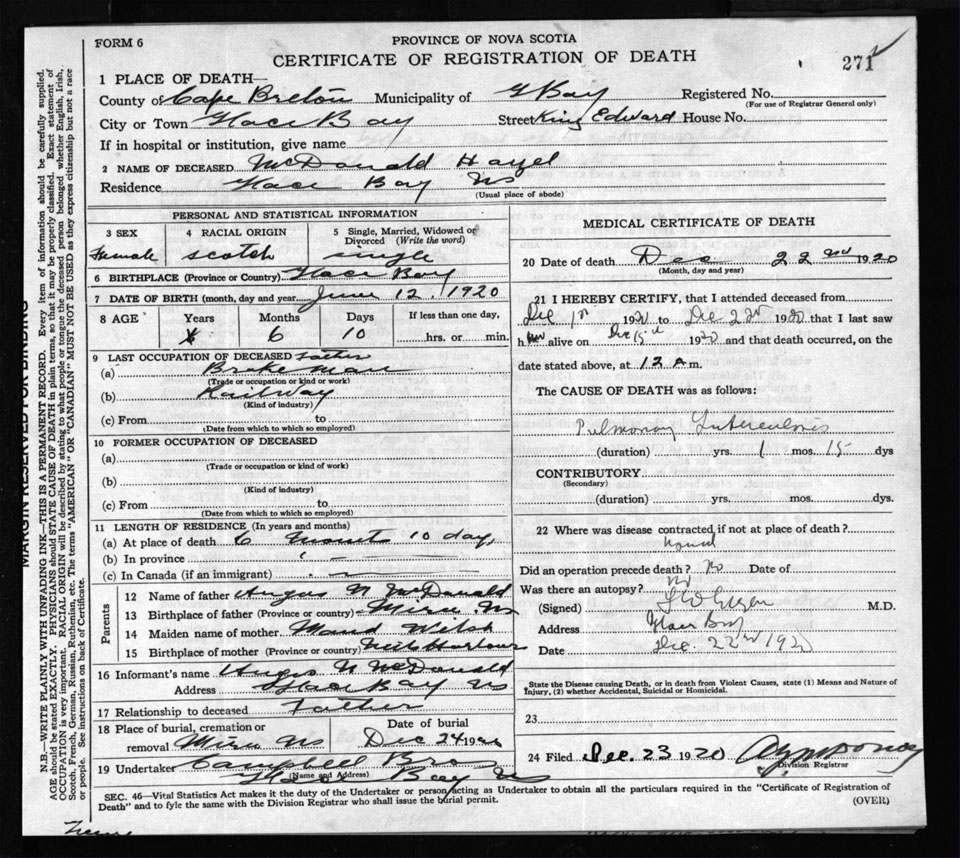 FORM 6
PROVINCE OF NOVA SCOTIA
CERTIFICATE OF REGISTRATION OF DEATH
271
1 PLACE OF DEATH—
County of Cape Breton Municipality of G Bay Registered No.
(For use of Registrar General only)
City or Town Glace Bay Street King Edward House No.
If in hospital or institution, give name
2 NAME OF DECEASED McDonald Hazel
Residence Glace Bay NS
(Usual place of abode)
PERSONAL AND STATISTICAL INFORMATION
3 SEX 4 RACIAL ORIGIN 5 Single, Married, Widowed or Divorced (Write the word)
Female scotch single
6 BIRTHPLACE (Province or Country) Glace Bay
7 DATE OF BIRTH (month, day and year) June 12. 1920
8 AGE Years Months Days If less than one day,
6 10 hrs. or min.
9 LAST OCCUPATION OF DECEASED Father
(a) Brakeman
(Trade or occupation or kind or work)
(b) Railway
(Kind of industry)
(c) From to
(Date from which to which so employed)
10 FORMER OCCUPATION OF DECEASED
(a)
(Trade or occupation or kind of work)
(b)
(Kind of industry)
(c) From to
(Date from which to which so employed)
11 LENGTH OF RESIDENCE (In years and months)
(a) At place of death 6 months 10 days
(b) In province
(c) In Canada (if an immigrant)
Parents
12 Name of father Angus N McDonald
13 Birthplace of father (Province or country) Mira NS
14 Maiden name of mother Maud Welsh
15 Birthplace of mother (Province or country) Neils Harbour
16 Informant's name Angus N McDonald
Address Glace Bay NS
17 Relationship to deceased Father
18 Place of burial, cremation or removal Mira NS
Date of burial Dec 24 1920
19 Undertaker Campbell Bros
(Name and Address)
Glace Bay NS
MEDICAL CERTIFICATE OF DEATH
20 Date of death Dec 22nd 1920
(Month, day and year)
21 I HEREBY CERTIFY, that I attended deceased from
Dec 1st 1920 to Dec 22nd 1920 that I last saw
h alive on Dec 15th 1920 and that death occurred, on the
date stated above, at 12 a m.
The CAUSE OF DEATH was as follows:
Pulmonary Tuberculosis
(duration) yrs. 1 mos. 15 dys
CONTRIBUTORY
(Secondary)
(duration) yrs. mos. dys.
22 Where was disease contracted if not at place of death?
Did an operation precede death? No Date of
Was there an autopsy? No
(Signed) M.D.
Address Glace Bay
Date Dec. 22nd 1920
State the Disease causing Death, or in death from Violent Causes, state (1) Means and Nature of Injury, (2) whether Accidental, Suicidal or Homicidal.
23
24 Filed Dec. 23 1920
Division Registrar
SEC. 46—Vital Statistics Act makes it the duty of the Undertaker or person acting as Undertaker to obtain all the particulars required in the "Certificate of Registration of
Death" and to fyle the same with the Division Registrar who shall issue the burial permit.
(OVER)
MARGIN RESERVED FOR BINDING
N.B.—WRITE PLAINLY WITH UNFADING INK—THIS IS A PERMANENT RECORD. Every item of information should be carefully supplied.
AGE should be stated EXACTLY. PHYSICIANS should STATE CAUSE OF DEATH in plain terms, so that it may be properly classified. Exact statement of
OCCUPATION is very important. RACIAL ORIGIN will be described by stating to what people or tongue the deceased person belonged whether English, Irish,
Scotch, French, German, Russian, Ruthenian, etc. The terms "AMERICAN" or "CANADIAN" MUST NOT BE USED as they express citizenship but not a race
or people. See instructions on back of Certificate.